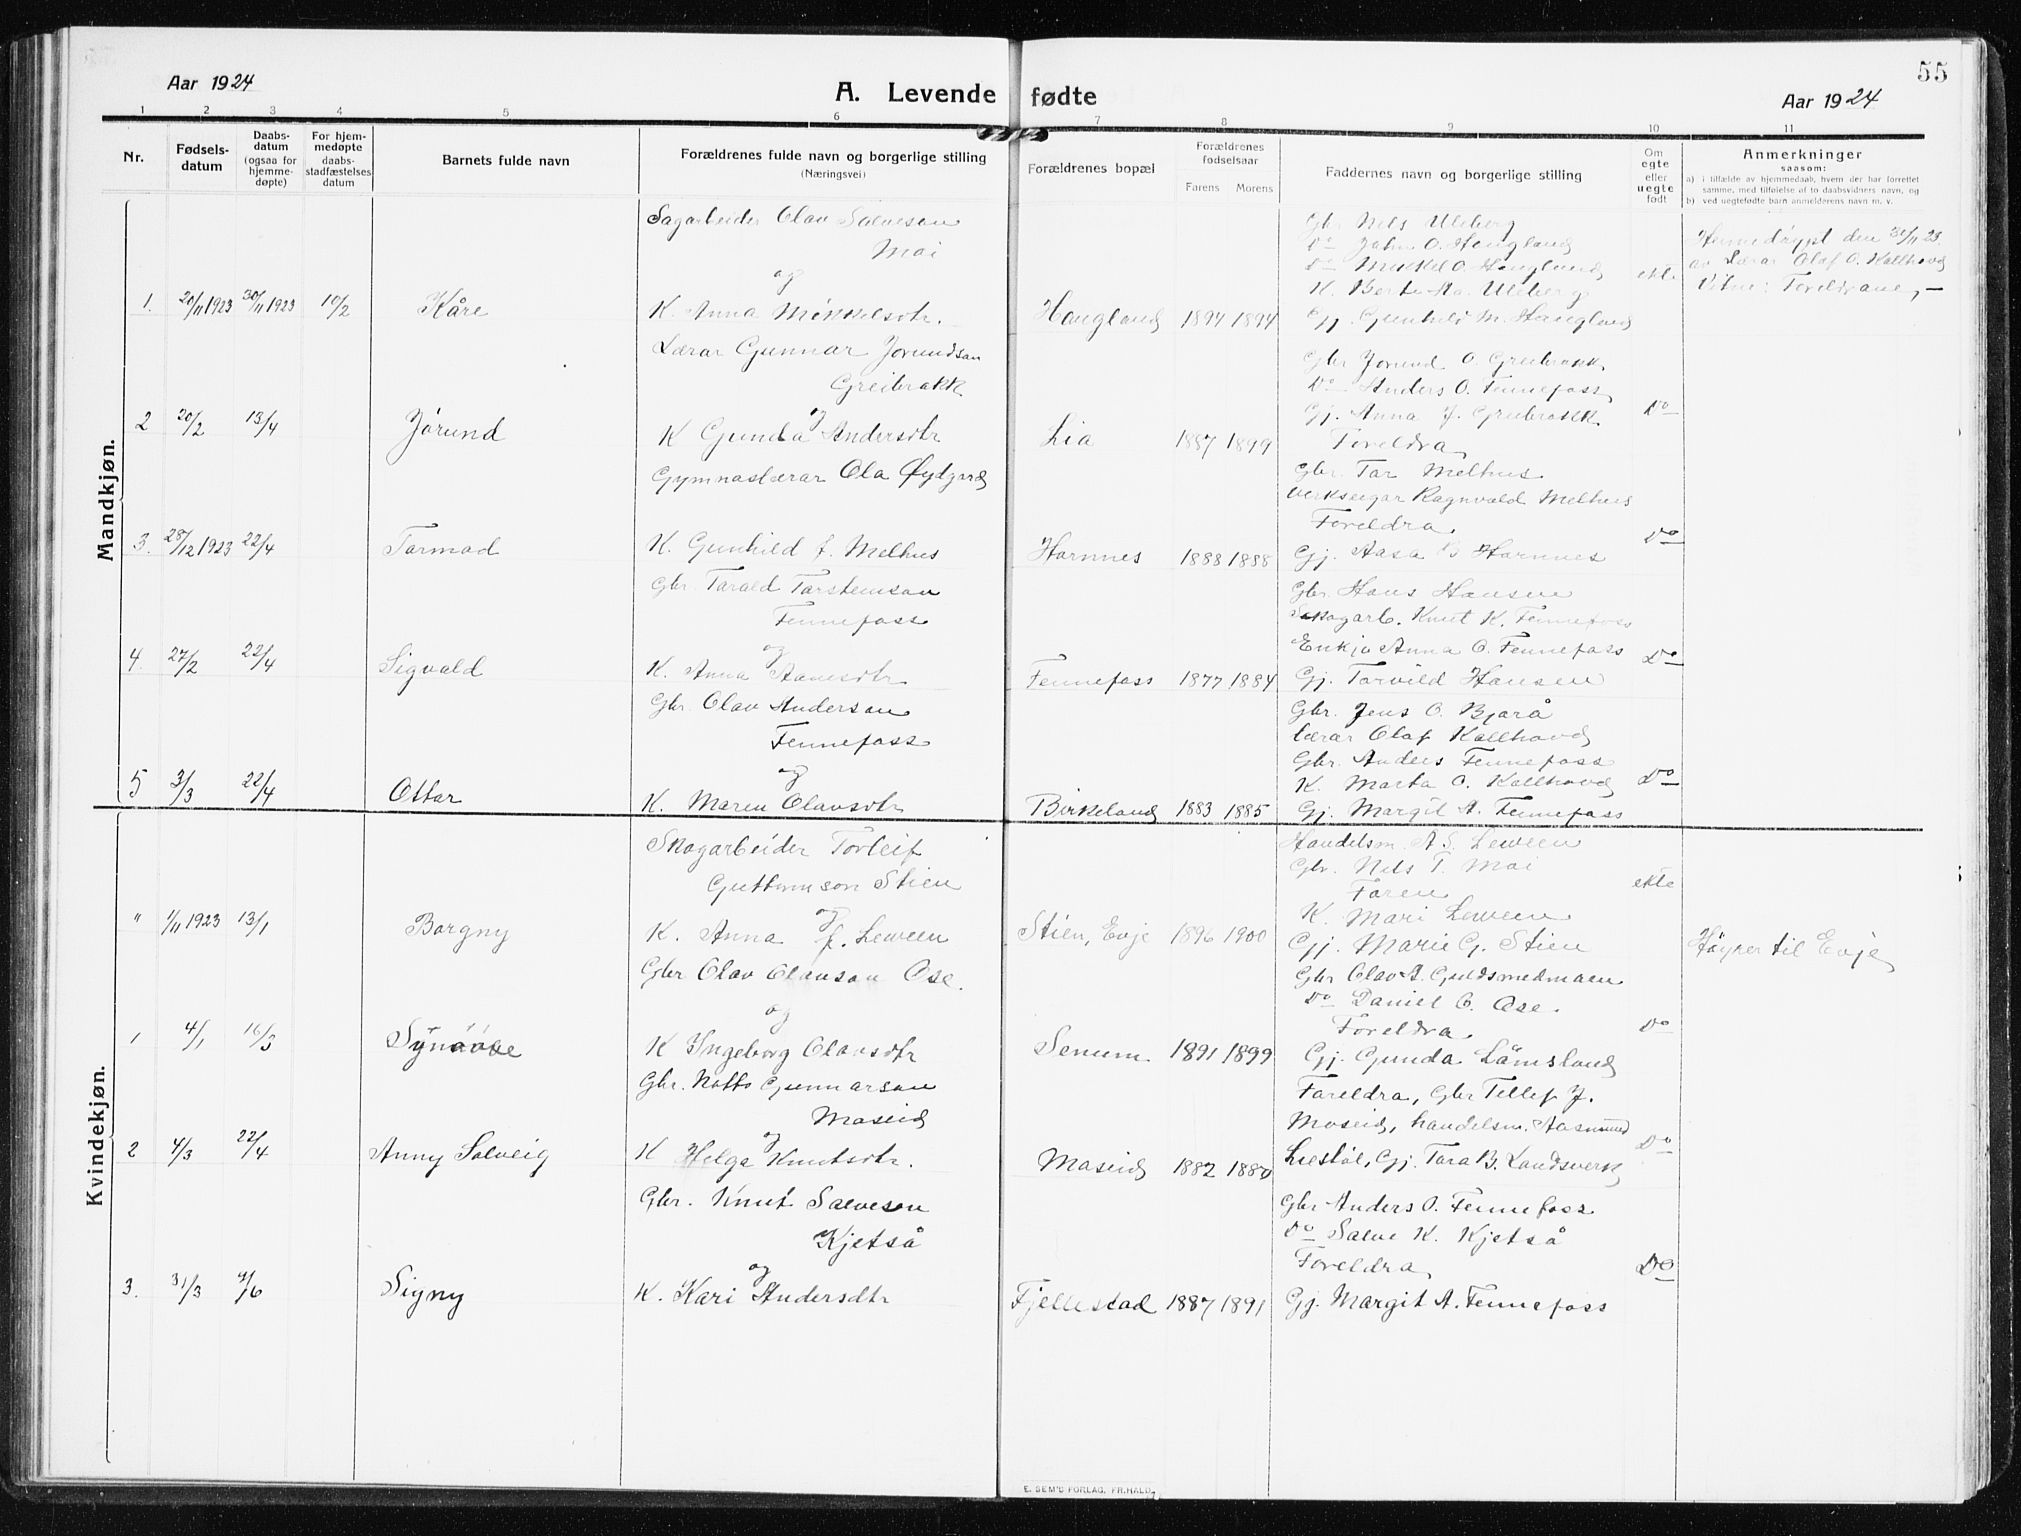 55
Aar 1924
A. Levende fødte
Aar 1924
1 2 3 4 5 6 7 8 9 10 11
Nr.
Fødsels-
datum
Daabs-
datum
(ogsaa for
hjemme-
døpte)
For hjem-
medøpte
daabs-
stadfæstelses
datum
Barnets fulde navn
Forældrenes fulde navn og borgerlige stilling
(Næringsvei)
Forældrenes bopæl
Forældrenes
fødselsaar
Farens Morens
Faddernes navn og borgerlige stilling
Om
egte
eller
uegte
født
Anmerkninger
saasom:
a) i tilfælde av hjemmedaab, hvem der har forrettet
samme, med tilføielse af to daabsvidners navn, og
b) ved uegtefødte barn anmelderens navn m. v.
Mandkjøn.
Sagarbeider Olav Salveson
Moi
og
1. 20/11 1923 30/11 1923 10/2 Kåre K. Anna Mikkelsdtr. Haugland 1894 1894
Gbr Nils Uleberg
Do John O. Haugland
Do Mikkel O. Haugland
K. Berte Uleberg
Gj. Gunhild M. Haugland
ekte
Heimedøypt den 30/11 23
av Lærar Olaf O. Kallhovd
Vitne: Foreldrane,-
Lærar Gunnar Jorundson
Greibrokk
og
2 20/2 13/4 Jørund K Gunda Andersdtr Lia 1887 1899
Gbr Jorund O. Greibrokk
Do Anders O. Fennefoss
Gj. Anna J. Greibrokk
Foreldra
Do
Gymnaslærar Ola Øydgard
3. 28/12 1923 22/4 Tarmod K. Gunhild J. Melhus Hornnes 1888 1888
Gbr. Tar Melhus
Verkseigar Ragnvald Melhus
Foreldra
Gj. Aasa B Hornnes
Do
Gbr. Tarald Tarsteinson
Fennefoss
og
4. 27/2 22/4 Sigvald K. Anna Aanesdtr Fennefoss 1877 1884
Gbr. Hans Hansen
Skogarb. Knut K. Fennefoss
Enkja Anna O. Fennefoss
Gj. Torvild Hansen
Do
Gbr. Olav Anderson
Fennefoss
og
5 3/3 22/4 Ottar K. Maren Olavsdtr Birkeland 1883 1885
Gbr. Jens O. Bjorå
Lærar Olaf Kallhovd
Gbr. Anders Fennefoss
K. Marta O. Kallhovd
Gj. Margit A. Fennefoss
Do
Kvindekjøn.
Skogarbeider Torleif
Guttormson Stien
og
" 1/11 1923 13/1 Borgny K. Anna J. Leween Stien, Evje 1896 1900
Handelsm. A S. Leween
Gbr. Nils T. Moi
Faren
K. Mari Leween
Gj. Marie G. Stien
ekte
Høyrer til Evje
Gbr Olav Olavson Ose.
og
1 4/1 16/3 Synøve K Ingeborg Olavsdtr Senum 1891 1899
Gbr Olav A. Guldsmedmoen
Do Daniel O. Ose
Foreldra
Gj. Gunda Låmsland
Do
Gbr. Notto Gunnarson
Moseid
og
2 4/3 22/4 Anny Solveig K Helga Knutsdtr. Moseid 1882 1880
Foreldra, Gbr Tellef J.
Moseid, handelsm. Aasmund
Liestøl, Gj. Tara B. Landsverk
Do
Gbr. Knut Salveson
Kjetså
og
3. 31/3 9/6 Signy K. Kari Andersdtr Fjellestad 1887 1891
Gbr Anders O. Fennefoss
Do Salve K. Kjetså
Foreldra
Gj. Margit A. Fennefoss
Do
E. SEM'S FORLAG, FR.HALD.